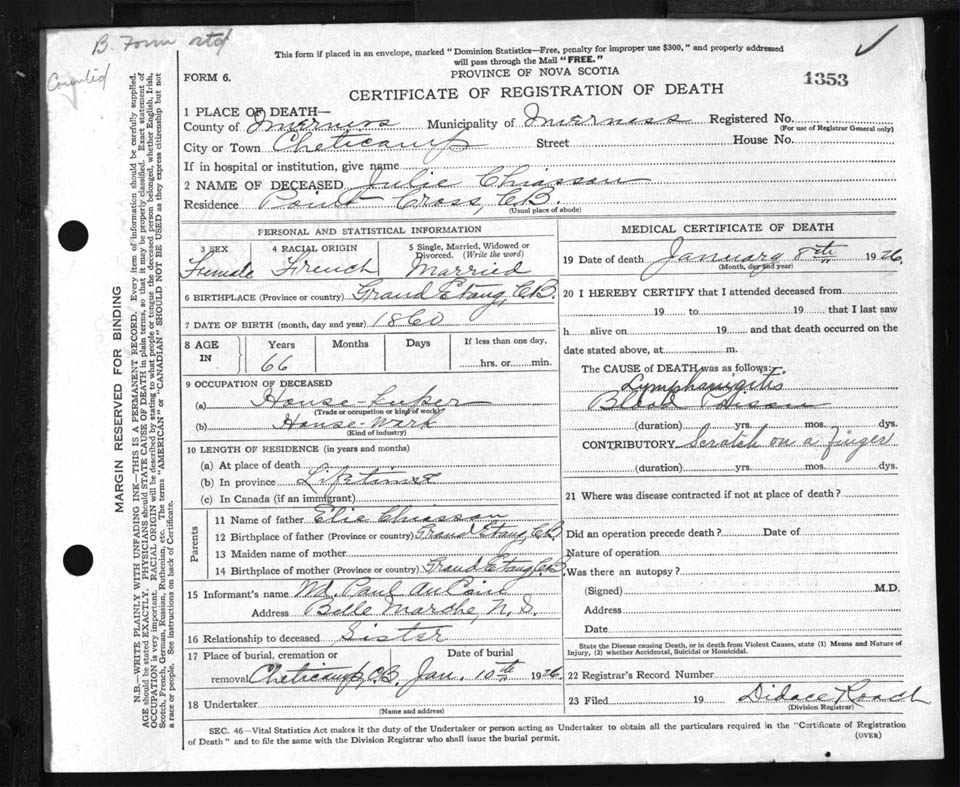 B. Form rtd
This form if placed in an envelope, marked "Dominion Statistics—Free, penalty for improper use $300," and properly addressed
will pass through the Mail "FREE."
FORM 6.
PROVINCE OF NOVA SCOTIA
1353
CERTIFICATE OF REGISTRATION OF DEATH
1 PLACE OF DEATH—
County of Inverness Municipality of Inverness Registered No.
(For use of Registrar General only)
City or Town Cheticamp Street House No.
If in hospital or institution, give name
2 NAME OF DECEASED Julie Chiasson
Residence Point Cross, C.B.
(Usual place of abode)
PERSONAL AND STATISTICAL INFORMATION
3 SEX 4 RACIAL ORIGIN 5 Single, Married, Widowed or
Divorced. (Write the word)
Female French Married
6 BIRTHPLACE (Province or country) Grand Etang, C.B.
7 DATE OF BIRTH (month, day and year) 1860
8 AGE IN Years Months Days If less than one day,
66 hrs. or min.
9 OCCUPATION OF DECEASED
(a) House-keeper
(Trade or occupation or kind of work)
(b) House-work
(Kind of industry)
10 LENGTH OF RESIDENCE (in years and months)
(a) At place of death
(b) In province Lifetime
(c) In Canada (if an immigrant)
Parents
11 Name of father Elie Chiasson
12 Birthplace of father (Province or country) Grand Etang, C.B.
13 Maiden name of mother
14 Birthplace of mother (Province or country) Grand Etang, C.B.
15 Informant's name Md. Paul AuCoin
Address Belle Marche, N.S.
16 Relationship to deceased Sister
17 Place of burial, cremation or Date of burial
removal Cheticamp, C.B. Jan. 10th 1926
18 Undertaker
(Name and address)
MEDICAL CERTIFICATE OF DEATH
19 Date of death January 8th 1926
(Month, day and year)
20 I HEREBY CERTIFY that I attended deceased from
19 to 19 that I last saw
h alive on 19 and that death occurred on the
date stated above, at m.
The CAUSE of DEATH was as follows:
Lymphangitis
Blood Poison
(duration) yrs. mos. dys.
CONTRIBUTORY Scratch on a finger
(duration) yrs. mos. dys.
21 Where was disease contracted if not at place of death?
Did an operation precede death? Date of
Nature of operation
Was there an autopsy?
(Signed) M.D.
Address
Date
State the Disease causing Death, or in death from Violent Causes, state (1) Means and Nature of
Injury, (2) whether Accidental, Suicidal or Homicidal.
22 Registrar's Record Number
23 Filed 19 Didace Roach
(Division Registrar)
SEC. 46—Vital Statistics Act makes it the duty of the Undertaker or person acting as Undertaker to obtain all the particulars required in the "Certificate of Registration
of Death" and to file the same with the Division Registrar who shall issue the burial permit.
(OVER)
MARGIN RESERVED FOR BINDING
N.B.—WRITE PLAINLY WITH UNFADING INK—THIS IS A PERMANENT RECORD. Every item of information should be carefully supplied.
AGE should be stated EXACTLY. PHYSICIANS should STATE CAUSE OF DEATH in plain terms, so that it may be properly classified. Exact statement of
OCCUPATION is very important. RACIAL ORIGIN will be described by stating to what people or tongue the deceased person belonged, whether English, Irish,
Scotch, French, German, Russian, Ruthenian, etc. The terms "AMERICAN" or "CANADIAN" SHOULD NOT BE USED as they express citizenship but not
a race or people. See instructions on back of Certificate.